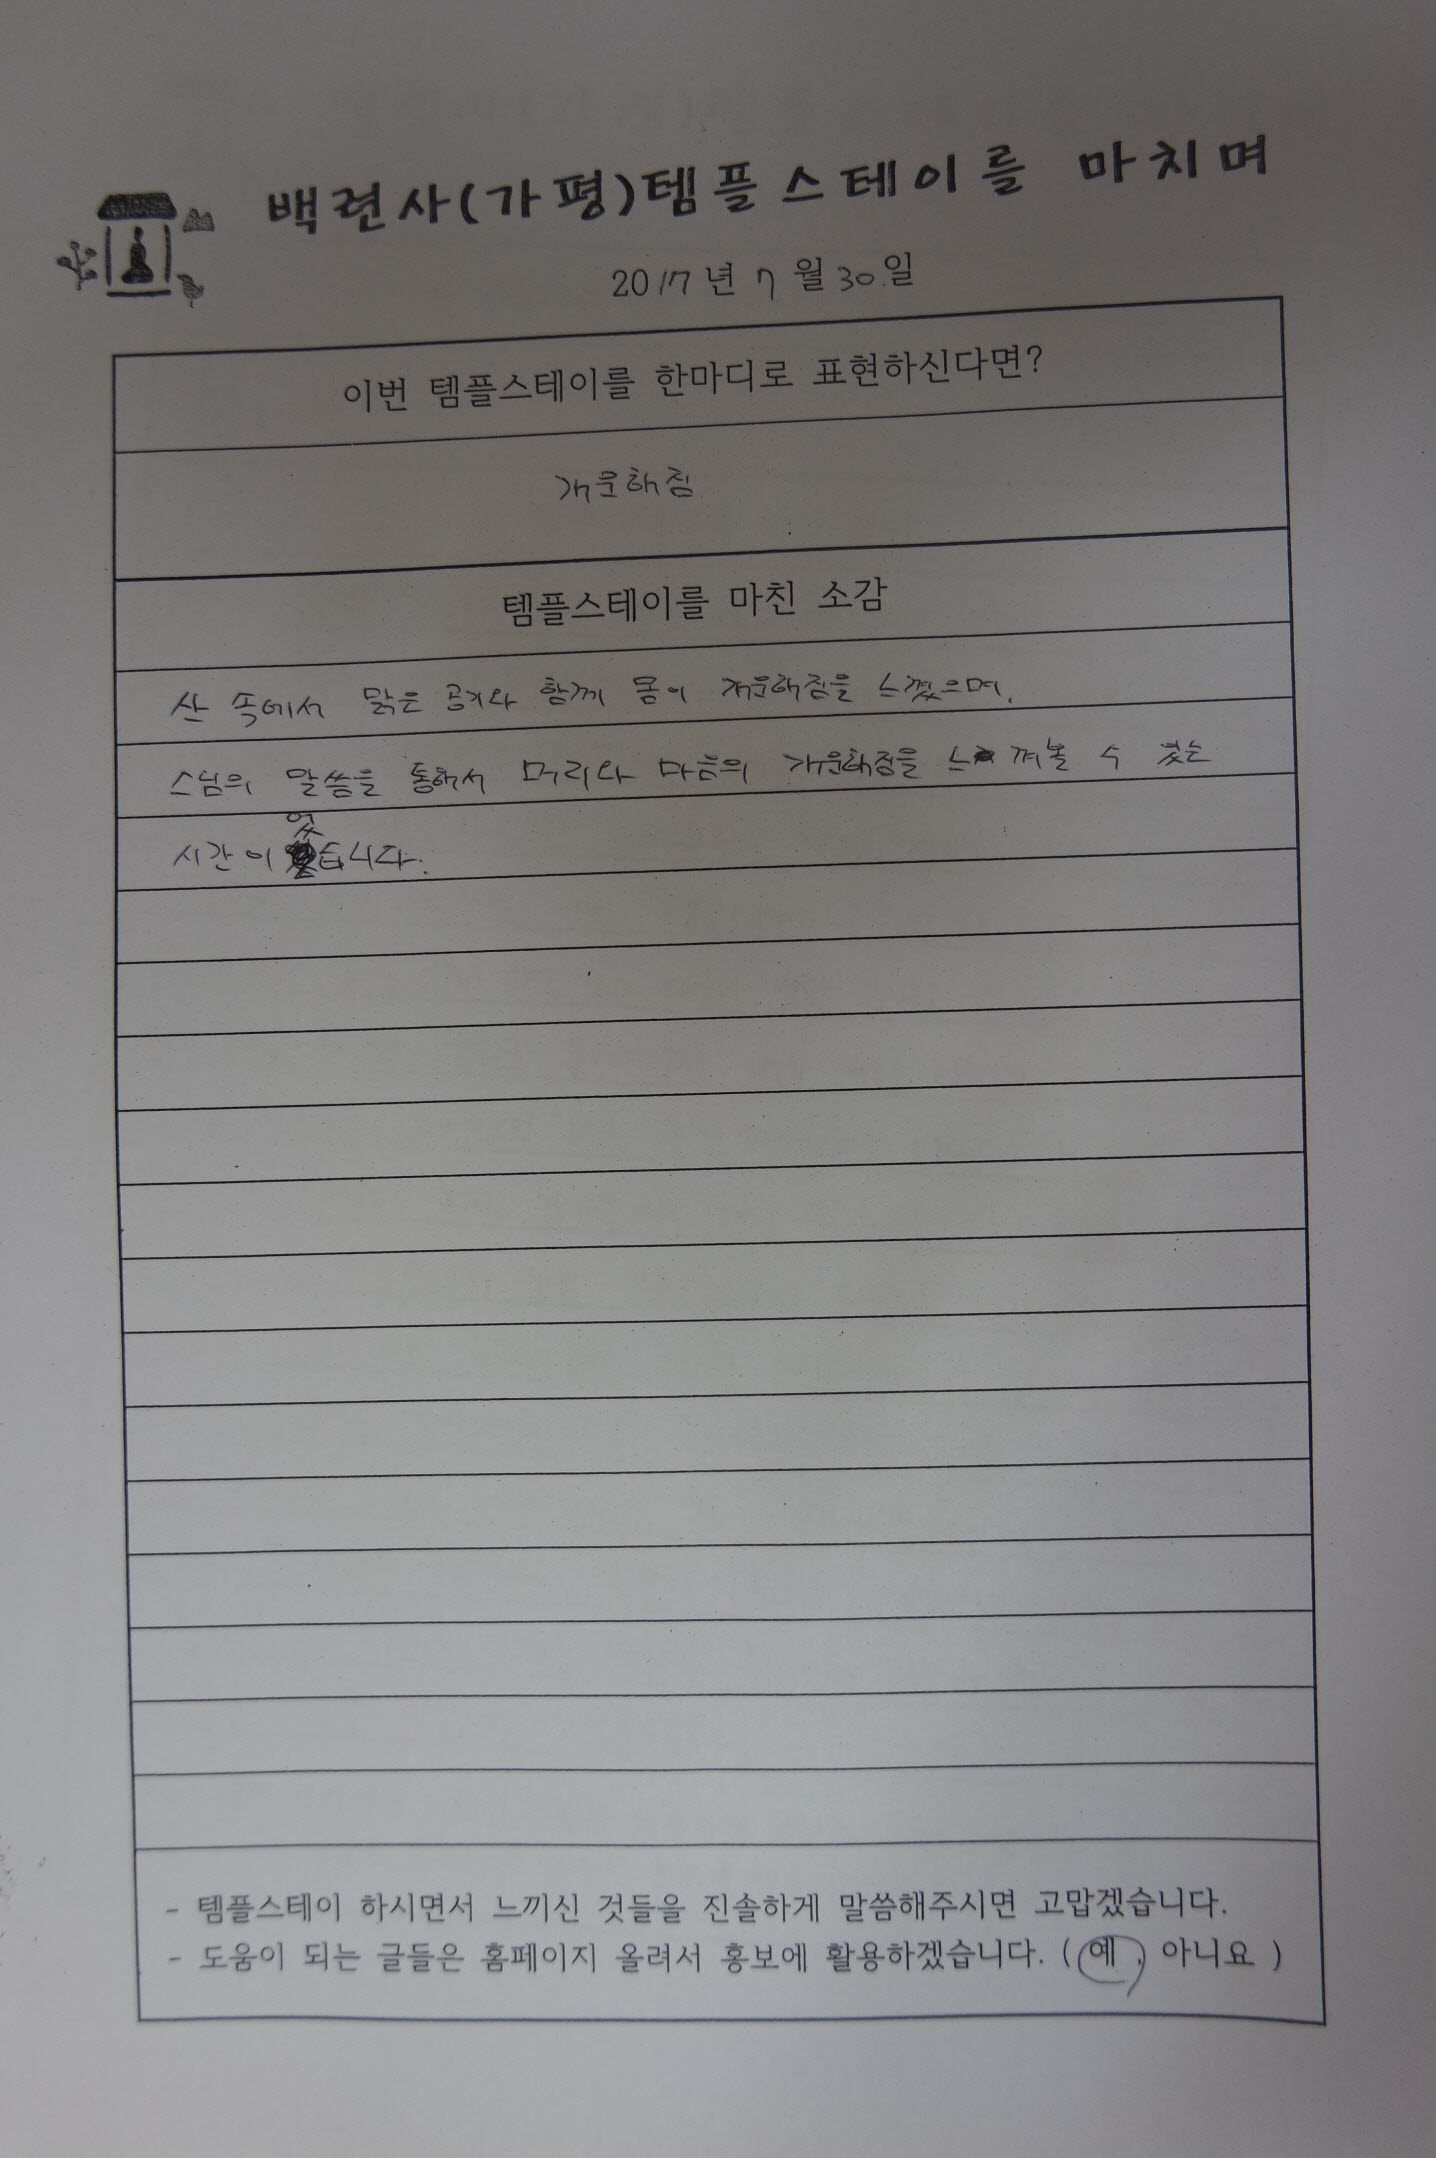 백련사(가평)템플스테이를 마치며
2017년 7월 30일
이번 템플스테이를 한마디로 표현하신다면?
개운해짐
템플스테이를 마친 소감
산 속에서 맑은 공기와 함께 몸이 개운해짐을 느꼈으며,
스님의 말씀을 통해서 머리와 마음의 개운해짐을 느껴볼 수 있는
시간이었습니다.
- 템플스테이 하시면서 느끼신 것들을 진솔하게 말씀해주시면 고맙겠습니다.
- 도움이 되는 글들은 홈페이지 올려서 홍보에 활용하겠습니다. ( 예 , 아니요 )